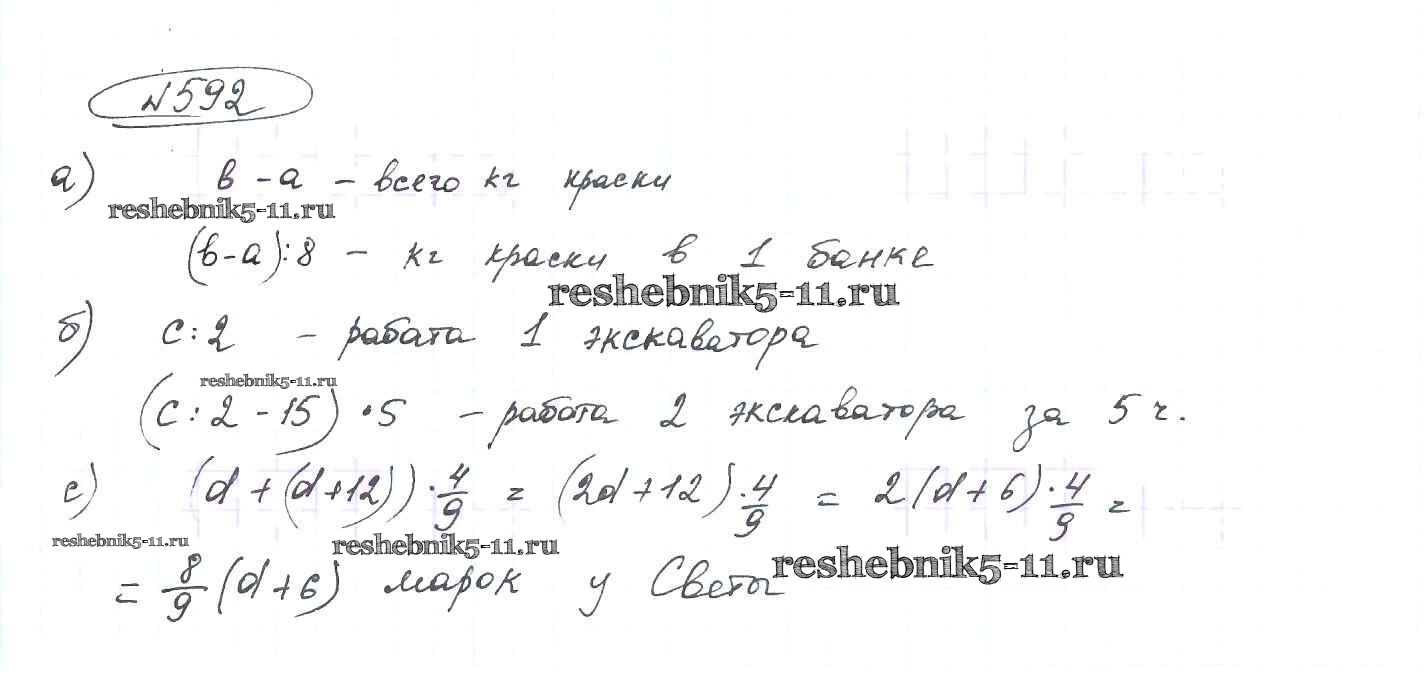 №592
а) в - а - всего кг краски
reshebnik5-11.ru
(в-а):8 - кг краски в 1 банке
reshebnik5-11.ru
б) с:2 - работа 1 экскаватора
reshebnik5-11.ru
(с:2-15)•5 - работа 2 экскаватора за 5 ч.
с) (d+(d+12))·4/9 = (2d+12)·4/9 = 2(d+6)·4/9 =
reshebnik5-11.ru reshebnik5-11.ru reshebnik5-11.ru
= 8/9 (d+6) марок у Светы